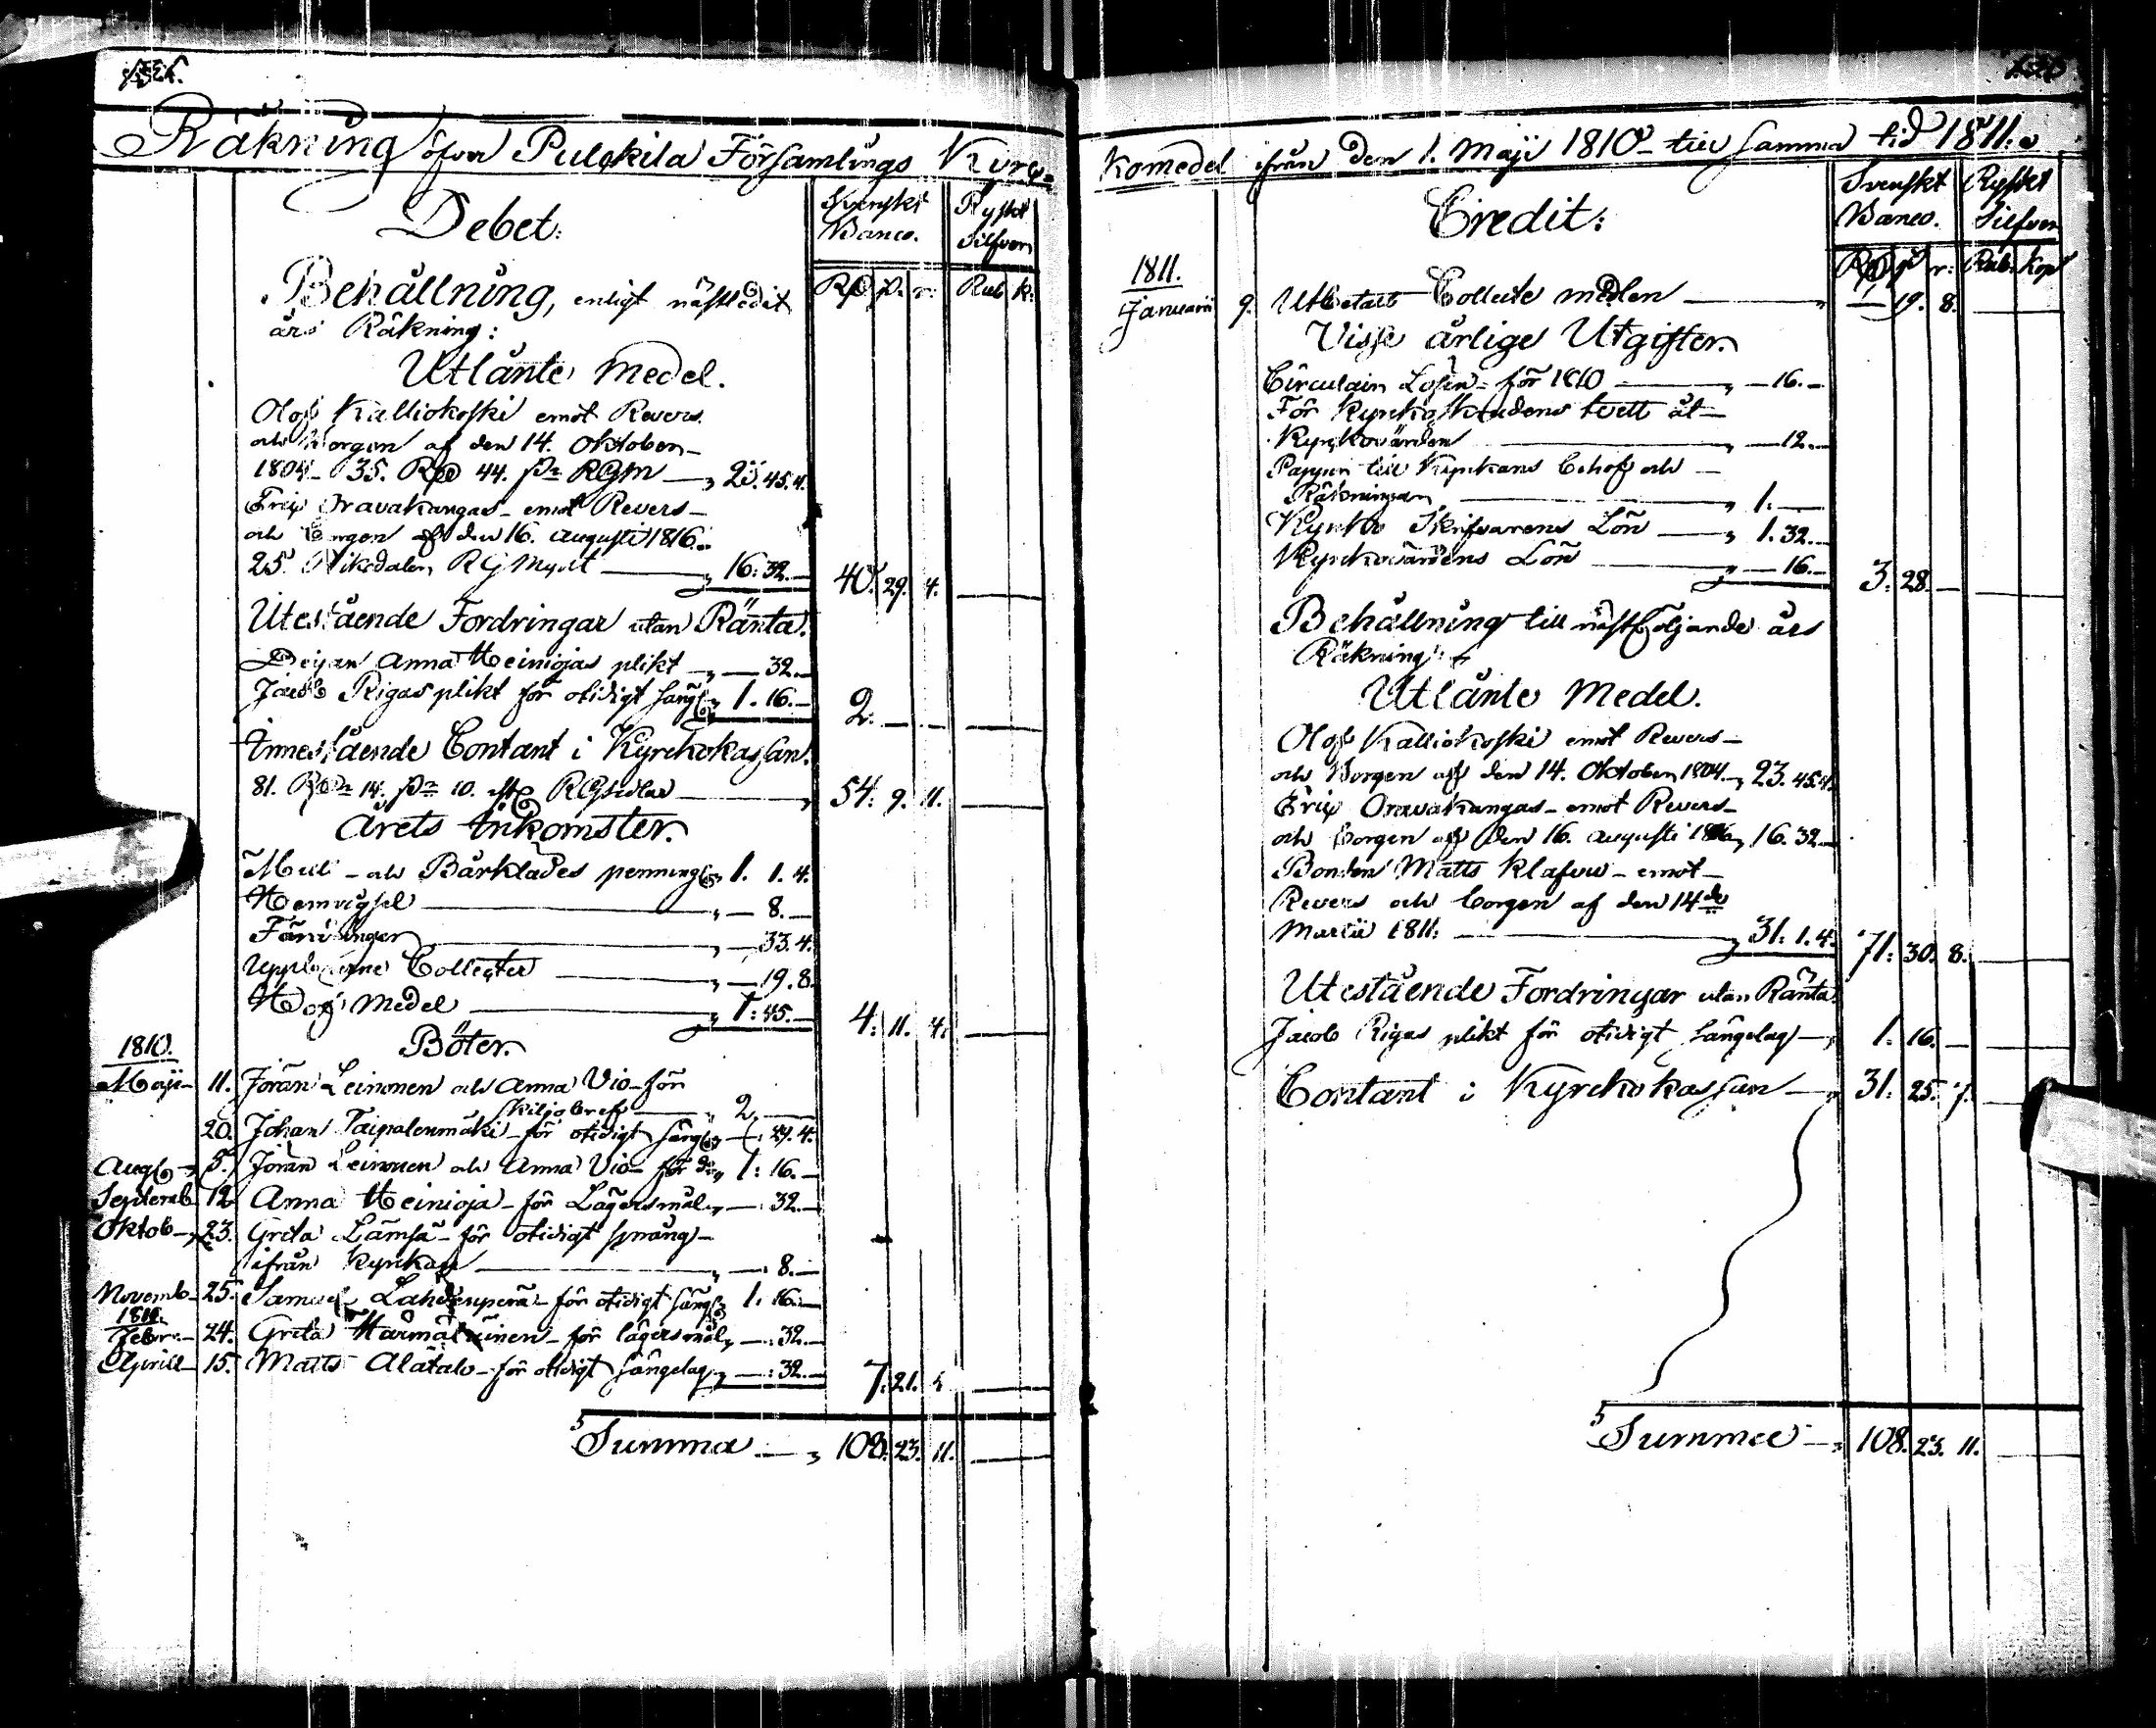 Räkning öfver Pulckila Församlings Kyrc-
Debet:
Svenskt Banco.
Ryskt Silfver
Rd s. r:
Rub. k:
Behållning, enligt nästledit
års Räkning:
Utlånte Medel.
Olof Kalliokoski emot Revers
och Borgen af den 14. Oktober
1804 – 35. Rd 44. s. RGM — " 23. 45. 4.
Eric Oravakangas – emot Revers –
och Borgen af den 16. Augusti 1816.
25. Riksdaler RGMynt — " 16: 32. — 40. 29. 4. —
Utestående Fordringar utan Ränta.
Deijan Anna Heiniojas plikt — " — 32. —
Jacob Rigas plikt för otidigt säng " 1. 16. — 2. — — —
Innestående Contant i Kyrckokassan.
81. Rd 14. s. 10. RGsedlar — " 54. 9. 11. —
Årets Inkomster.
Mull – och Bårklädes penning " 1. 1. 4.
Hemvigsel — " — 8. —
— " — 33. 4.
Upplupne Collecter — " — 19. 8.
Hof Medel — " 1: 45. — 4. 11. 4. —
Böter.
1810.
Maji – 11. Jöran Leinonen och Anna Vio – för
Skiljobref — " 2. —
20. Johan Taipalenmäki – för otidigt säng " — 29. 4.
Aug – 5. Jöran Leinonen och Anna Vio – för do " 1: 16. —
Septemb 12. Anna Heinioja – för Lägersmål " — 32. —
Oktob – 23. Greta Lämsä – för otidigt språng –
ifrån Kyrkan — " — 8. —
Novemb – 25. Samuel Lahdenperä – för otidigt säng " 1. 16. —
1811.
Febr: – 24. Greta – för lägersmål " — 32. —
Aprill – 15. Matts Alatalo – för otidigt sängelag " — 32. — 7. 21. —
Summa — " 108. 23. 11. —
komedel ifrån den 1. Maji 1810 – till samma tid 1811.
Credit:
Svenskt Banco.
Ryskt Silfver
Rd s r:
Rub. Kop
1811.
Januarii 9. Utbetalt Collecte medlen — " — 19. 8. —
Visse årlige Utgifter.
Circulair Lösen – för 1810 — " — 16. —
För Kyrkoskrudens tvätt åt –
Kyrkovärden — " — 12. —
Papper till Kyrkans behof och –
Räkningar — " 1. —
Kyrko Skrifvarens Lön — " 1. 32. —
Kyrckovärdens Lön — " — 16. — 3: 28. — —
Behållning till nästföljande års
Räkning:
Utlånte Medel.
Olof Kalliokoski emot Revers –
och Borgen af den 14. Oktober 1804. – " 23. 45. 4.
Eric Oravakangas – emot Revers –
och Borgen af den 16. Augusti " 16. 32. —
Bonden Matts Klafvu – emot –
Revers och borgen af den 14de
Martii 1811. — " 31: 1. 4. 71: 30. 8. —
Utestående Fordringar utan Ränta.
Jacob Rigas plikt för otidigt sängelag – " 1. 16. — —
Contant i Kyrckokassan — " 31: 25. 7. —
Summa — " 108. 23. 11. —